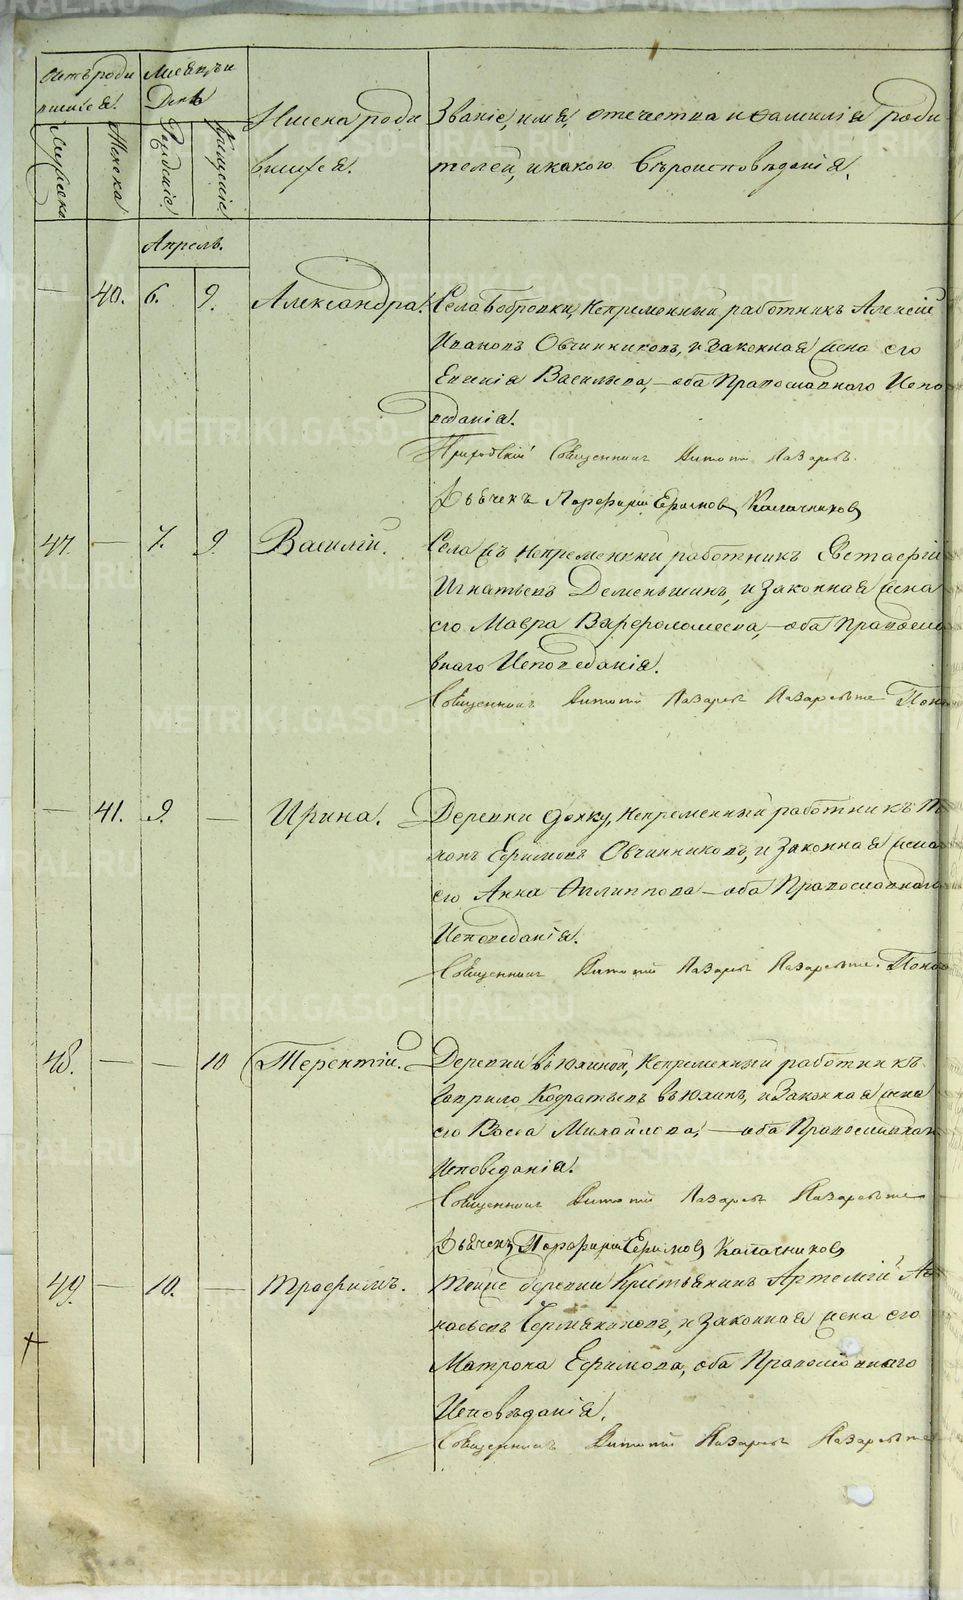 Счетъ роди
вшихся.
Мужеска
Женска
Месяцъ и
День
Рожденіе
Крещеніе
Имена роди
вшихся.
Званіе, имя, отечества и Фамилія роди
телей, и какого Вѣроисповѣданія.
Апрель.
— 40. 6. 9. Александра.
Села Бобровки, Непременный работникъ Алексій
Ивановъ Овчинниковъ, и Законная жена его
Евгенія Васильева, — оба Православнаго Испо
веданія.
Приходскій Священникъ Лазаревъ.
Дьячекъ Порфирій Ефимовъ Калачниковъ
47. — 7. 9. Василій.
Села съ Непременный работникъ Евстафій
Игнатьевъ Деменьшинъ, и Законная жена
его Мавра Варфоломеева, — оба Правосла
внаго Исповеданія.
Священникъ Лазарь Лазаревъ
— 41. 9. — Ирина.
Деревни Непременный работникъ
Ефимовъ Овчинниковъ, и Законная жена
его Анна Филиппова — оба Православнаго
Исповеданія.
Священникъ Лазарь Лазаревъ
48. — — 10 Терентій.
Деревни Вьюхиной, Непременный работникъ
Гаврило Кодратьевъ Вьюхинъ, и Законная жена
его Васса Михайлова, — оба Православнаго
Исповеданія.
Священникъ Лазарь Лазаревъ
Дьячекъ Порфирій Ефимовъ Калачниковъ
49. — 10. — Трафимъ.
Тойже деревни Крестьянинъ Артемій
и Законная жена его
Матрона Ефимова, оба Православнаго
Исповѣданія.
Священникъ Лазарь Лазаревъ
METRIKI.GASO-URAL.RU